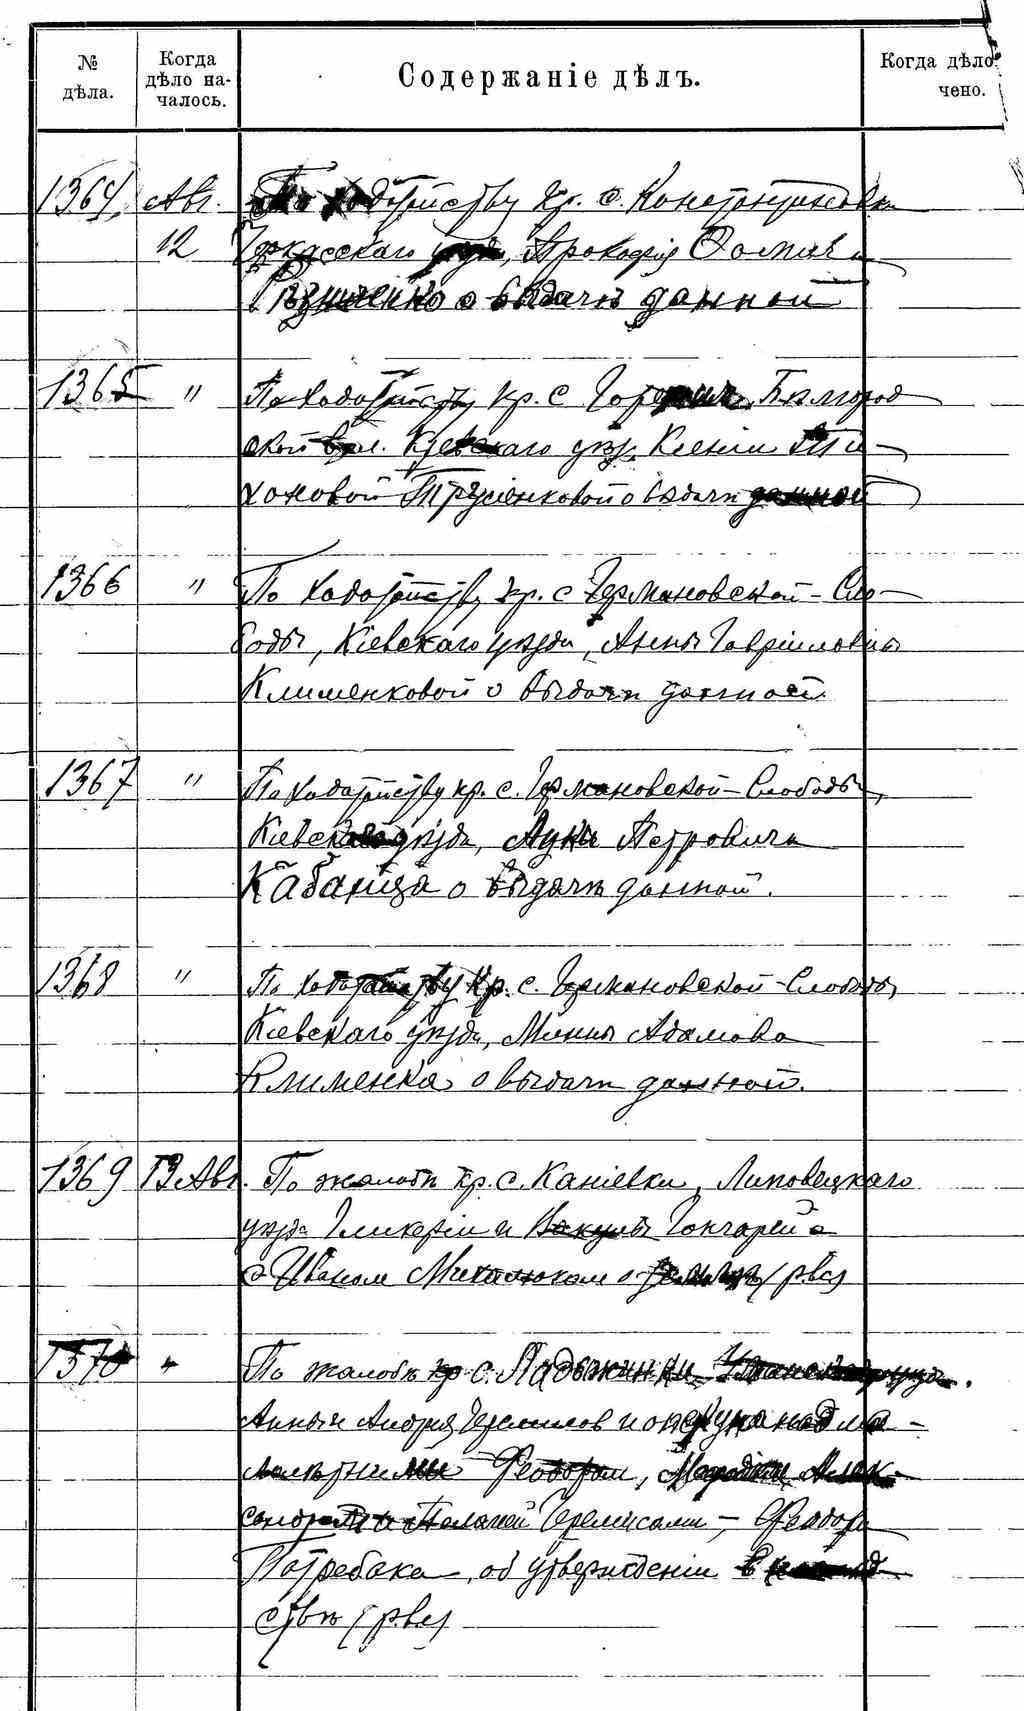 № дѣла.
Когда дѣло началось.
Содержаніе дѣлъ.
Когда дѣло
чено.
1364 Авг. По ходатайству кр. с. Константиновки
12 Черкасскаго уѣзда, Прокофія Ѳомича
о выдачѣ данной
1365 " По ходатайству кр. с. Бѣлгород
ской вол. Кіевскаго уѣз. Ксеніи Ти-
хоновой о выдачѣ данной
1366 " По ходатайству кр. с. Германовской-Сло-
боды, Кіевскаго уѣзда, Анны Гавріиловны
Клименковой о выдачѣ данной.
1367 " По ходатайству кр. с. Германовской-Слободы,
Кіевскаго уѣзда, Луки Петровича
Кабанца о выдачѣ данной.
1368 " По ходатайству кр. с. Германовской-Слободы
Кіевскаго уѣзда, Минны Адамова
Клименка о выдачѣ данной.
1369 13 Авг. По жалобѣ кр. с. Каніевки, Липовецкаго
уѣзда Гликеріи и Вакулы Гончарей
съ Иваномъ о землѣ (рвс)
1370 " По жалобѣ кр. с. Ладыжинки, Уманскаго уѣзда.
Анны и Андрея Черемисов и опекуна над ма-
лолѣтними Феодором, Алек-
сандрой и Пелагеей Черемисами, – Феодора
Потребака, об утвержденіи в наслѣд-
ствѣ (рвс)